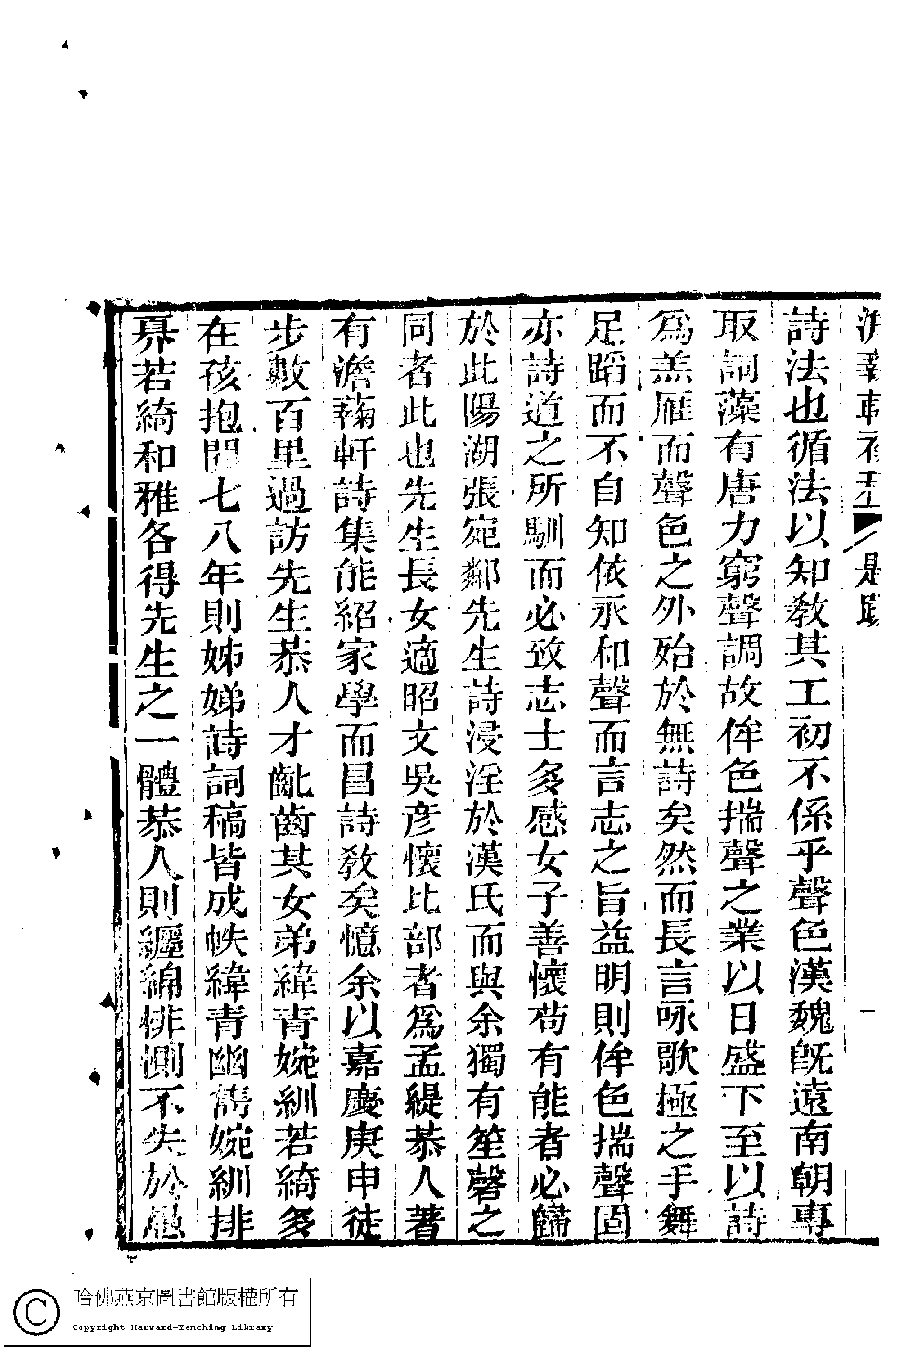 詩法也循法以知教其工初不係乎聲色漢魏旣遠南朝專
取詞藻有唐力窮聲調故侔色揣聲之業以日盛下至以詩
爲羔雁而聲色之外始於無詩矣然而長言咏歌極之手舞
足蹈而不自知依永和聲而言志之旨益明則侔色揣聲固
亦詩道之所馴而必致志士多感女子善懷苟有能者必歸
於此陽湖張宛鄰先生詩浸淫於漢氏而與余獨有笙磬之
同者此也先生長女適昭文吳彥懷比部者爲孟緹恭人著
有澹蘜軒詩集能紹家學而昌詩敎矣憶余以嘉慶庚申徒
步數百里過訪先生恭人才齔齒其女弟緯青婉紃若綺多
在孩抱閒七八年則姊娣詩詞稿皆成帙緯青幽雋婉紃排
奡若綺和雅各得先生之一體恭人則纏綿悱惻不失於愚
哈佛燕京圖書館版權所有
Copyright Harvard-Yenching Library